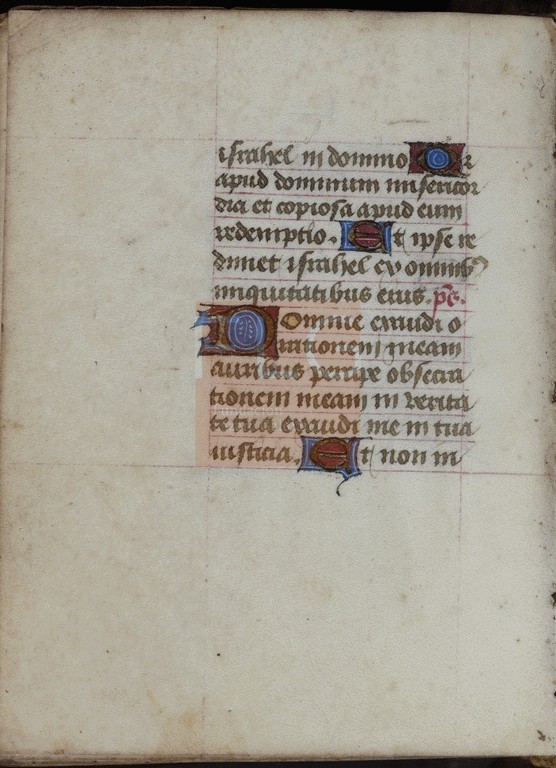 israhel in domino Q<span></span>r
apud dominum misericor
dia et copiosa apud eum
redemptio. Et ipse re
dimet israhel ex omnib9
iniquitatibus eius. ps.
Domine exaudi o
rationem meam
auribus percipe obsecra
tionem meam in verita
te tua exaudi me in tua
iusticia. Et non in